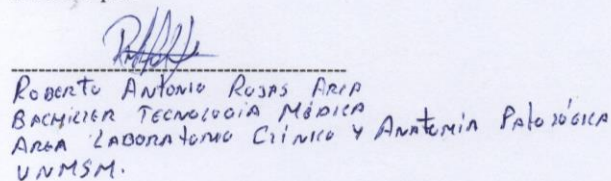 Roberto Antonio Rojas Aria
Bachiller Tecnología Médica
Area Laboratorio Clínico y Anatomía Patológica
UNMSM.